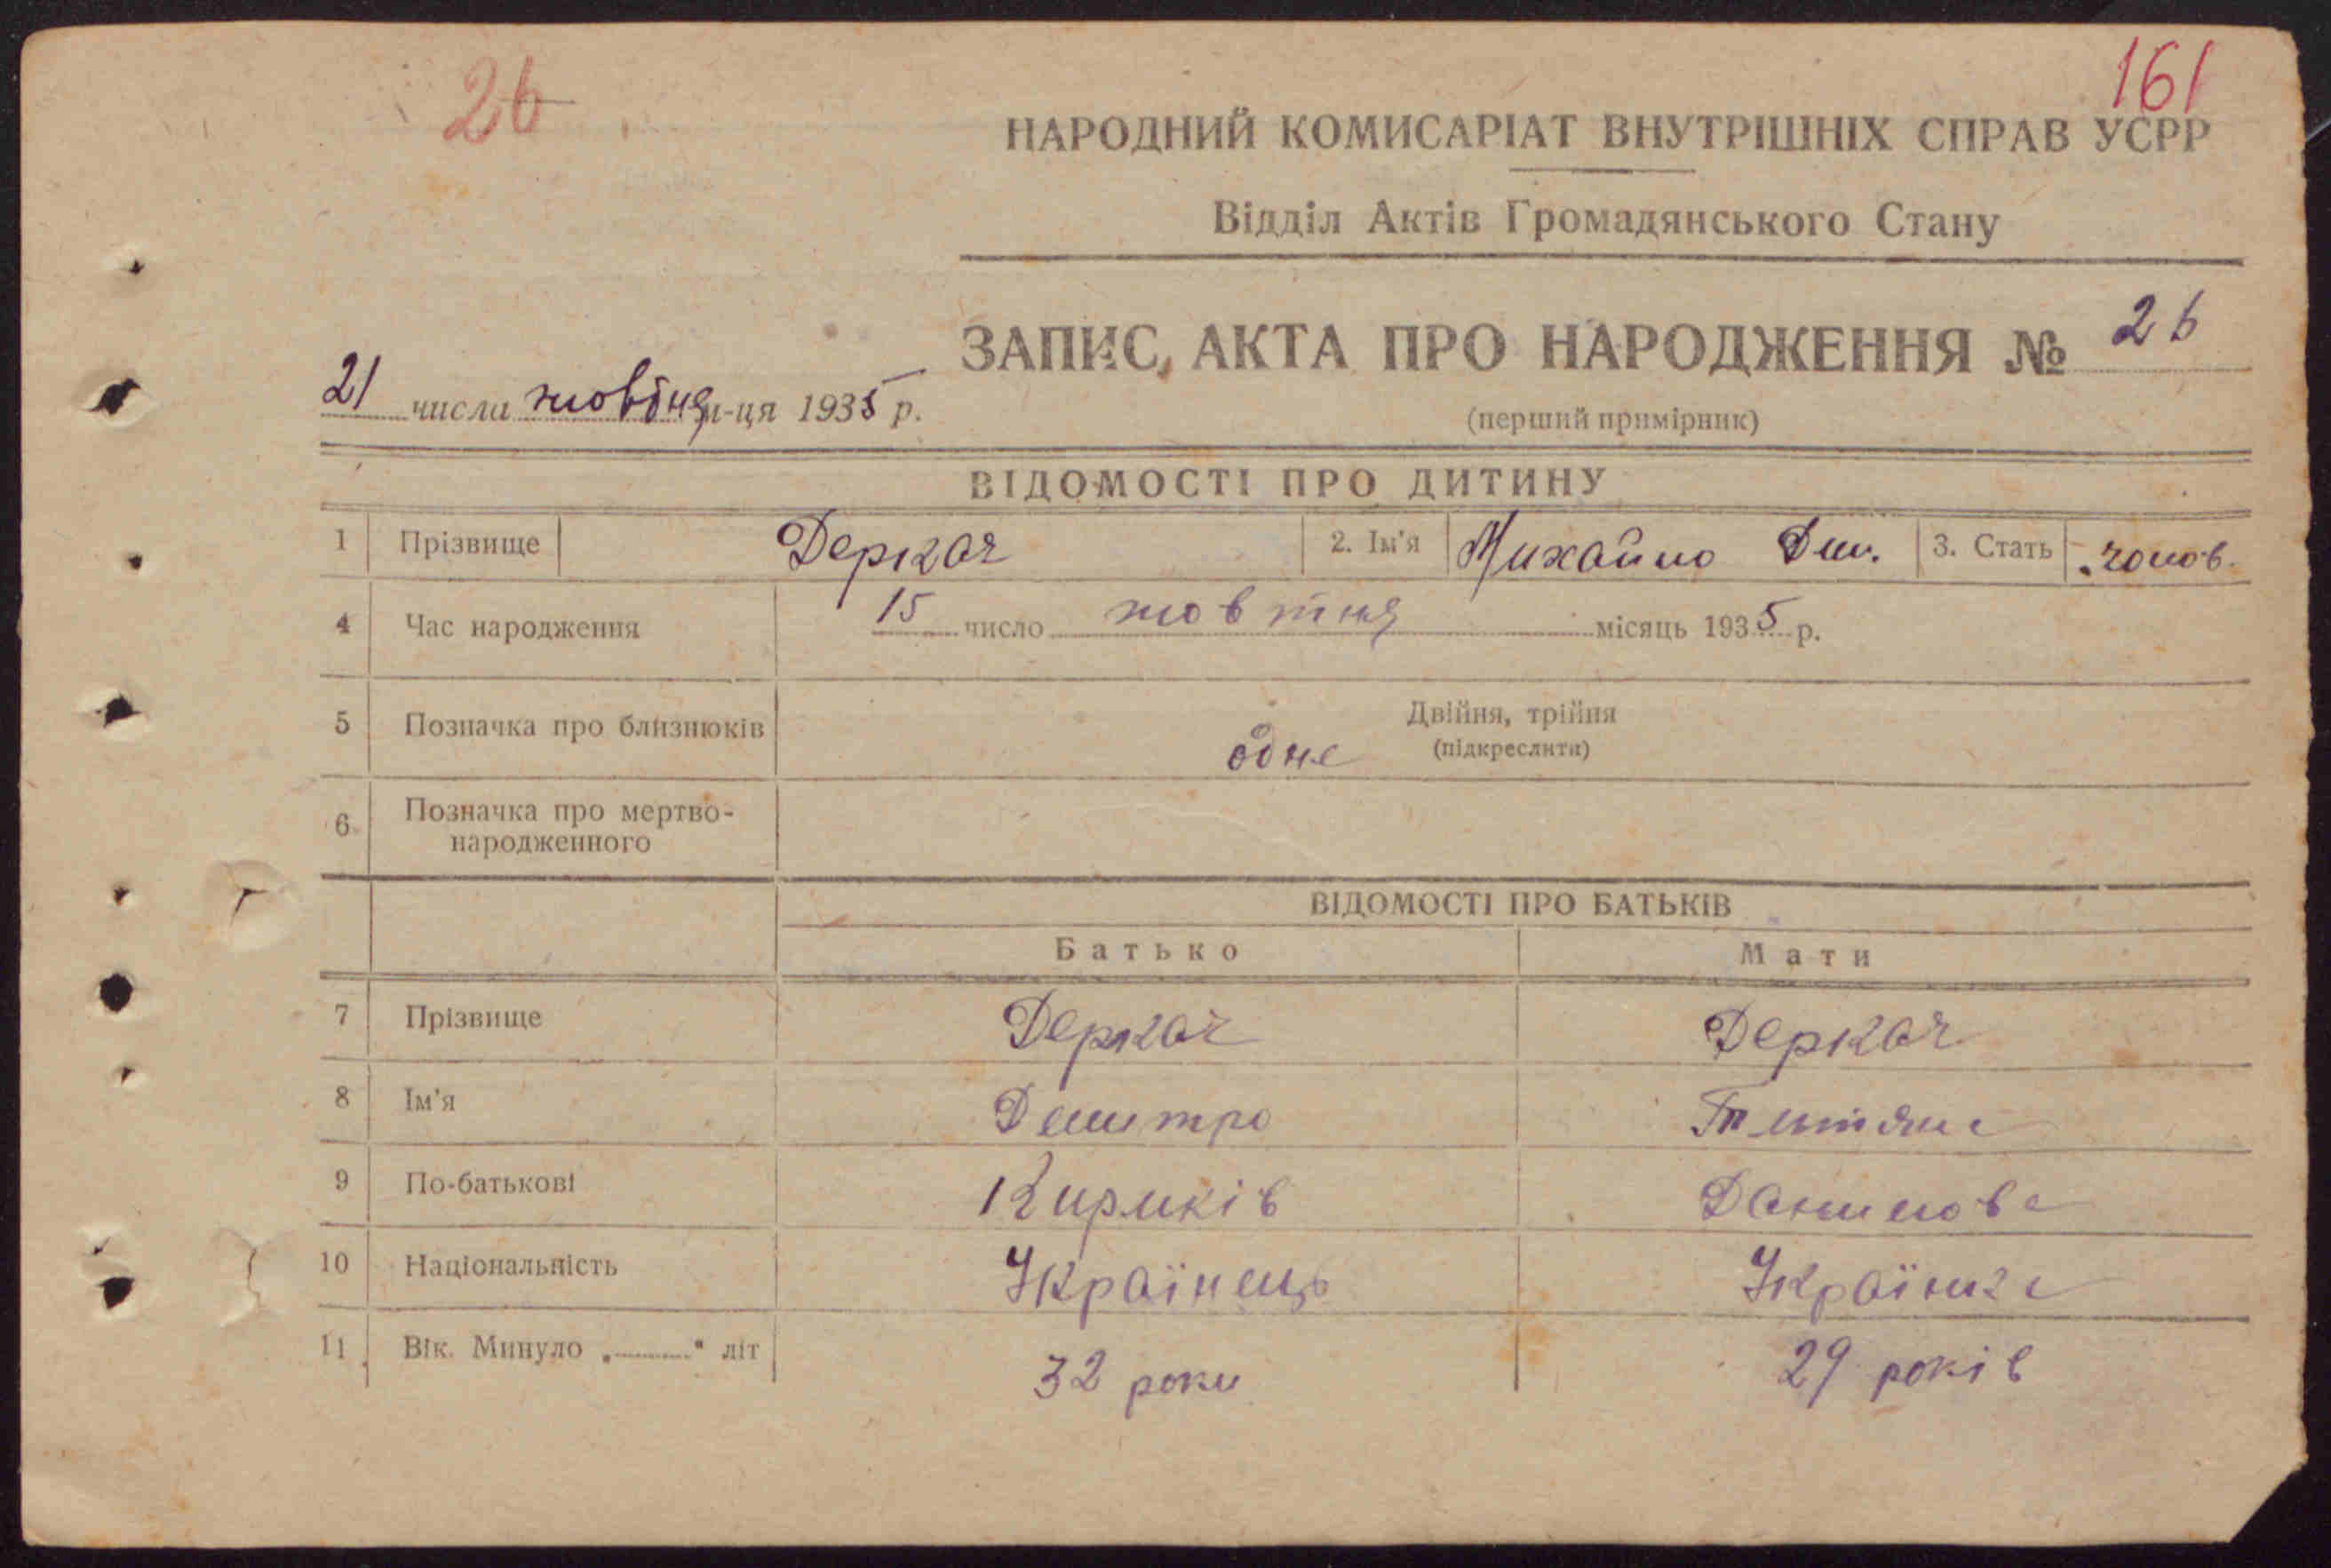 26
161
НАРОДНИЙ КОМИСАРІАТ ВНУТРІШНІХ СПРАВ УСРР
Відділ Актів Громадянського Стану
ЗАПИС АКТА ПРО НАРОДЖЕННЯ № 26
21 числа жовтня м-ця 1935 р.
(перший примірник)
ВІДОМОСТІ ПРО ДИТИНУ
1 Прізвище Деркач 2. Ім'я Михайло Дм. 3. Стать чолов.
4 Час народження 15 число жовтня місяць 1935 р.
5 Позначка про близнюків одне Двійня, трійня
(підкреслити)
6 Позначка про мертво-
народженного
ВІДОМОСТІ ПРО БАТЬКІВ
Батько Мати
7 Прізвище Деркач Деркач
8 Ім'я Дмитро Тетяна
9 По-батькові Кириків Данилова
10 Національність Українець Українка
11 Вік. Минуло „ “ літ 32 роки 29 років